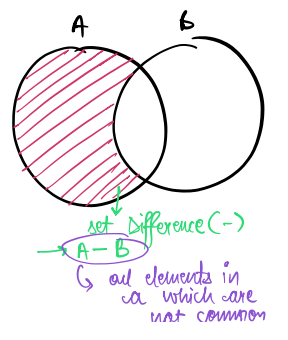 A B
set Difference (-)
→ A - B
↳ all elements in
a which are
not common